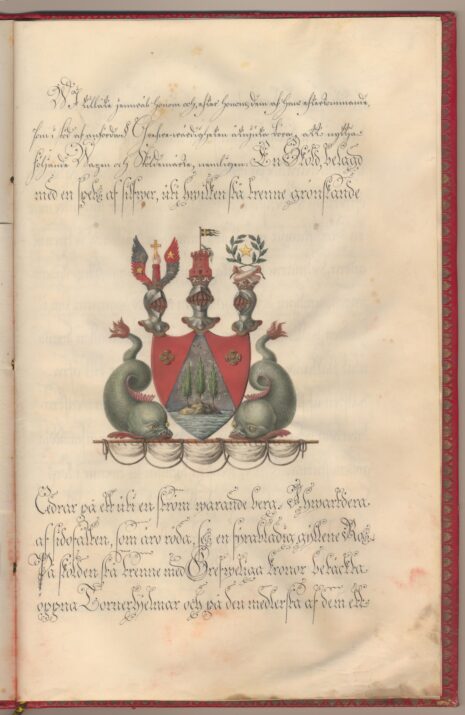 Wi tillåte jemwäl honom och, efter honom, dem af hans efterkommande,
som i kraft af
följande Wapen och Sköldemärke, nemligen: En Sköld, belagd
med en spets af silfwer, uti hwilken stå trenne grönskande
Cedrar på ett uti en ström warande berg. I hwartdera
af sidofälten, som äro röda, ses en fyrabladig gyllene Ros.
På skölden stå trenne med Grefweliga kronor betäckta
öppna Tornerhjelmar och på den medlersta af dem ett